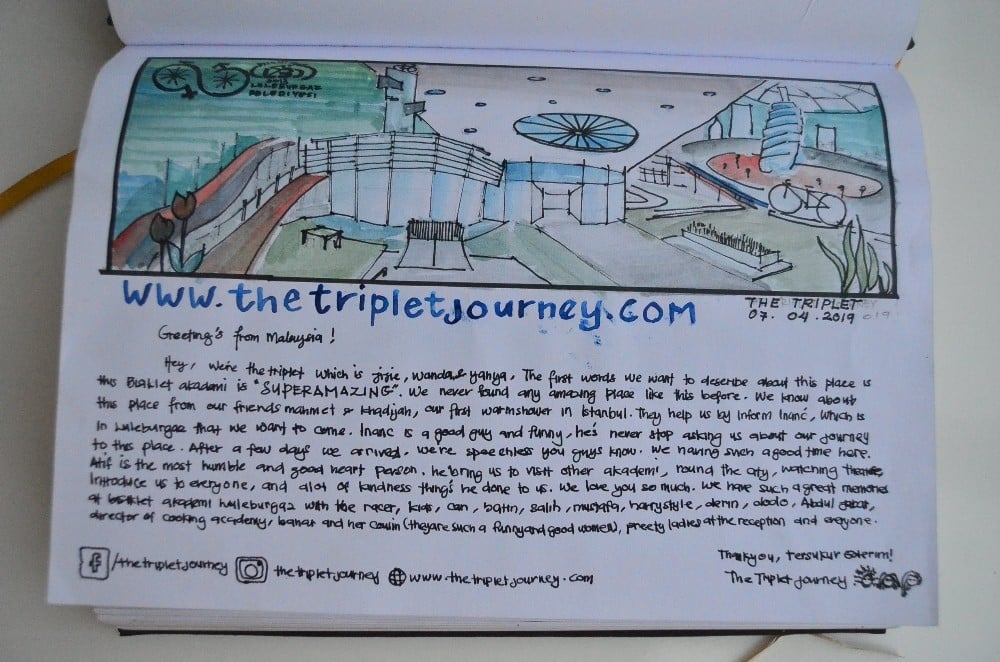 2019
LULEBURGAZ
BELEDIYESI
www.thetripletjourney.com
THE TRIPLET
07. 04. 2019
Greeting's from Malaysia !
Hey, We're the triplet which is jijie, wanda & yahya, The first words we want to describe about this place is
this Bisiklet akademi is "SUPERAMAZING". We never found any amazing place like this before. We know about
this place from our friends mahmet & khadijah, our first warmshower in istanbul. They help us by inform Inanc, which is
in Luleburgaz that we want to come. Inanc is a good guy and funny, he's never stop asking us about our journey
to this place. After a few days we arrived, we're speechless you guys know. We having such a good time here.
Atif is the most humble and good heart person. he bring us to visit other akademi, round the city, watching
introduce us to everyone, and alot of kindness thing's he done to us. We love you so much. We have such a great memories
at bisiklet akademi Luleburgaz with the racer, kids, can, batin, salih, mustafa, harrystyle, derin, dodo, Abdul
director of cooking academy, bahar and her cousin (they are such a funny and good women), preety ladies at the reception and everyone.
Thank you, tersukur ederim!
/thetripletjourney thetripletjourney www.thetripletjourney.com
The Triplet journey